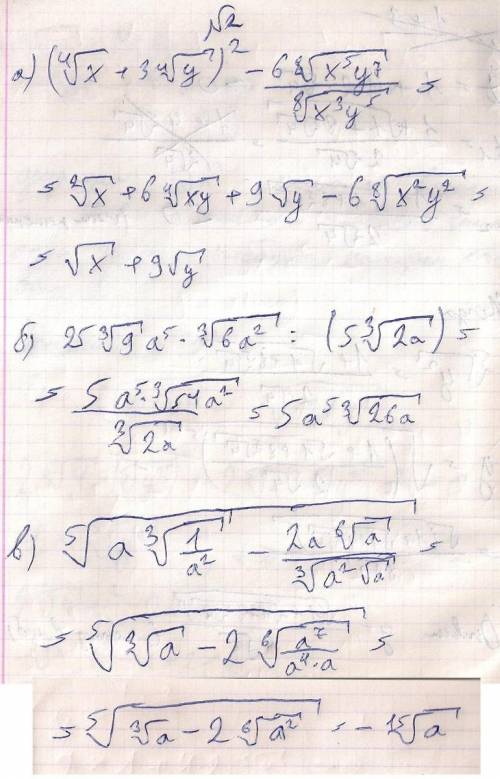 №2
а) (⁴√x + 3⁴√y)² − 6⁸√(x⁵y⁷) / ⁸√(x³y⁵) =
= ²√x + 6⁴√(xy) + 9√y − 6⁸√(x²y²) =
= √x + 9√y
б) 25³√9 a⁵ · ³√(6a²) : (5³√(2a)) =
= 5a⁵·³√(54a²) / ³√(2a) = 5a⁵ ³√(26a)
в) ⁵√(a ³√(1/a²) − 2a ⁶√a / ³√(a²√a)) =
= ⁵√(³√a − 2 ⁶√(a⁷/(a⁴·a))) =
= ⁵√(³√a − 2 ⁶√(a²)) = − ¹⁵√a